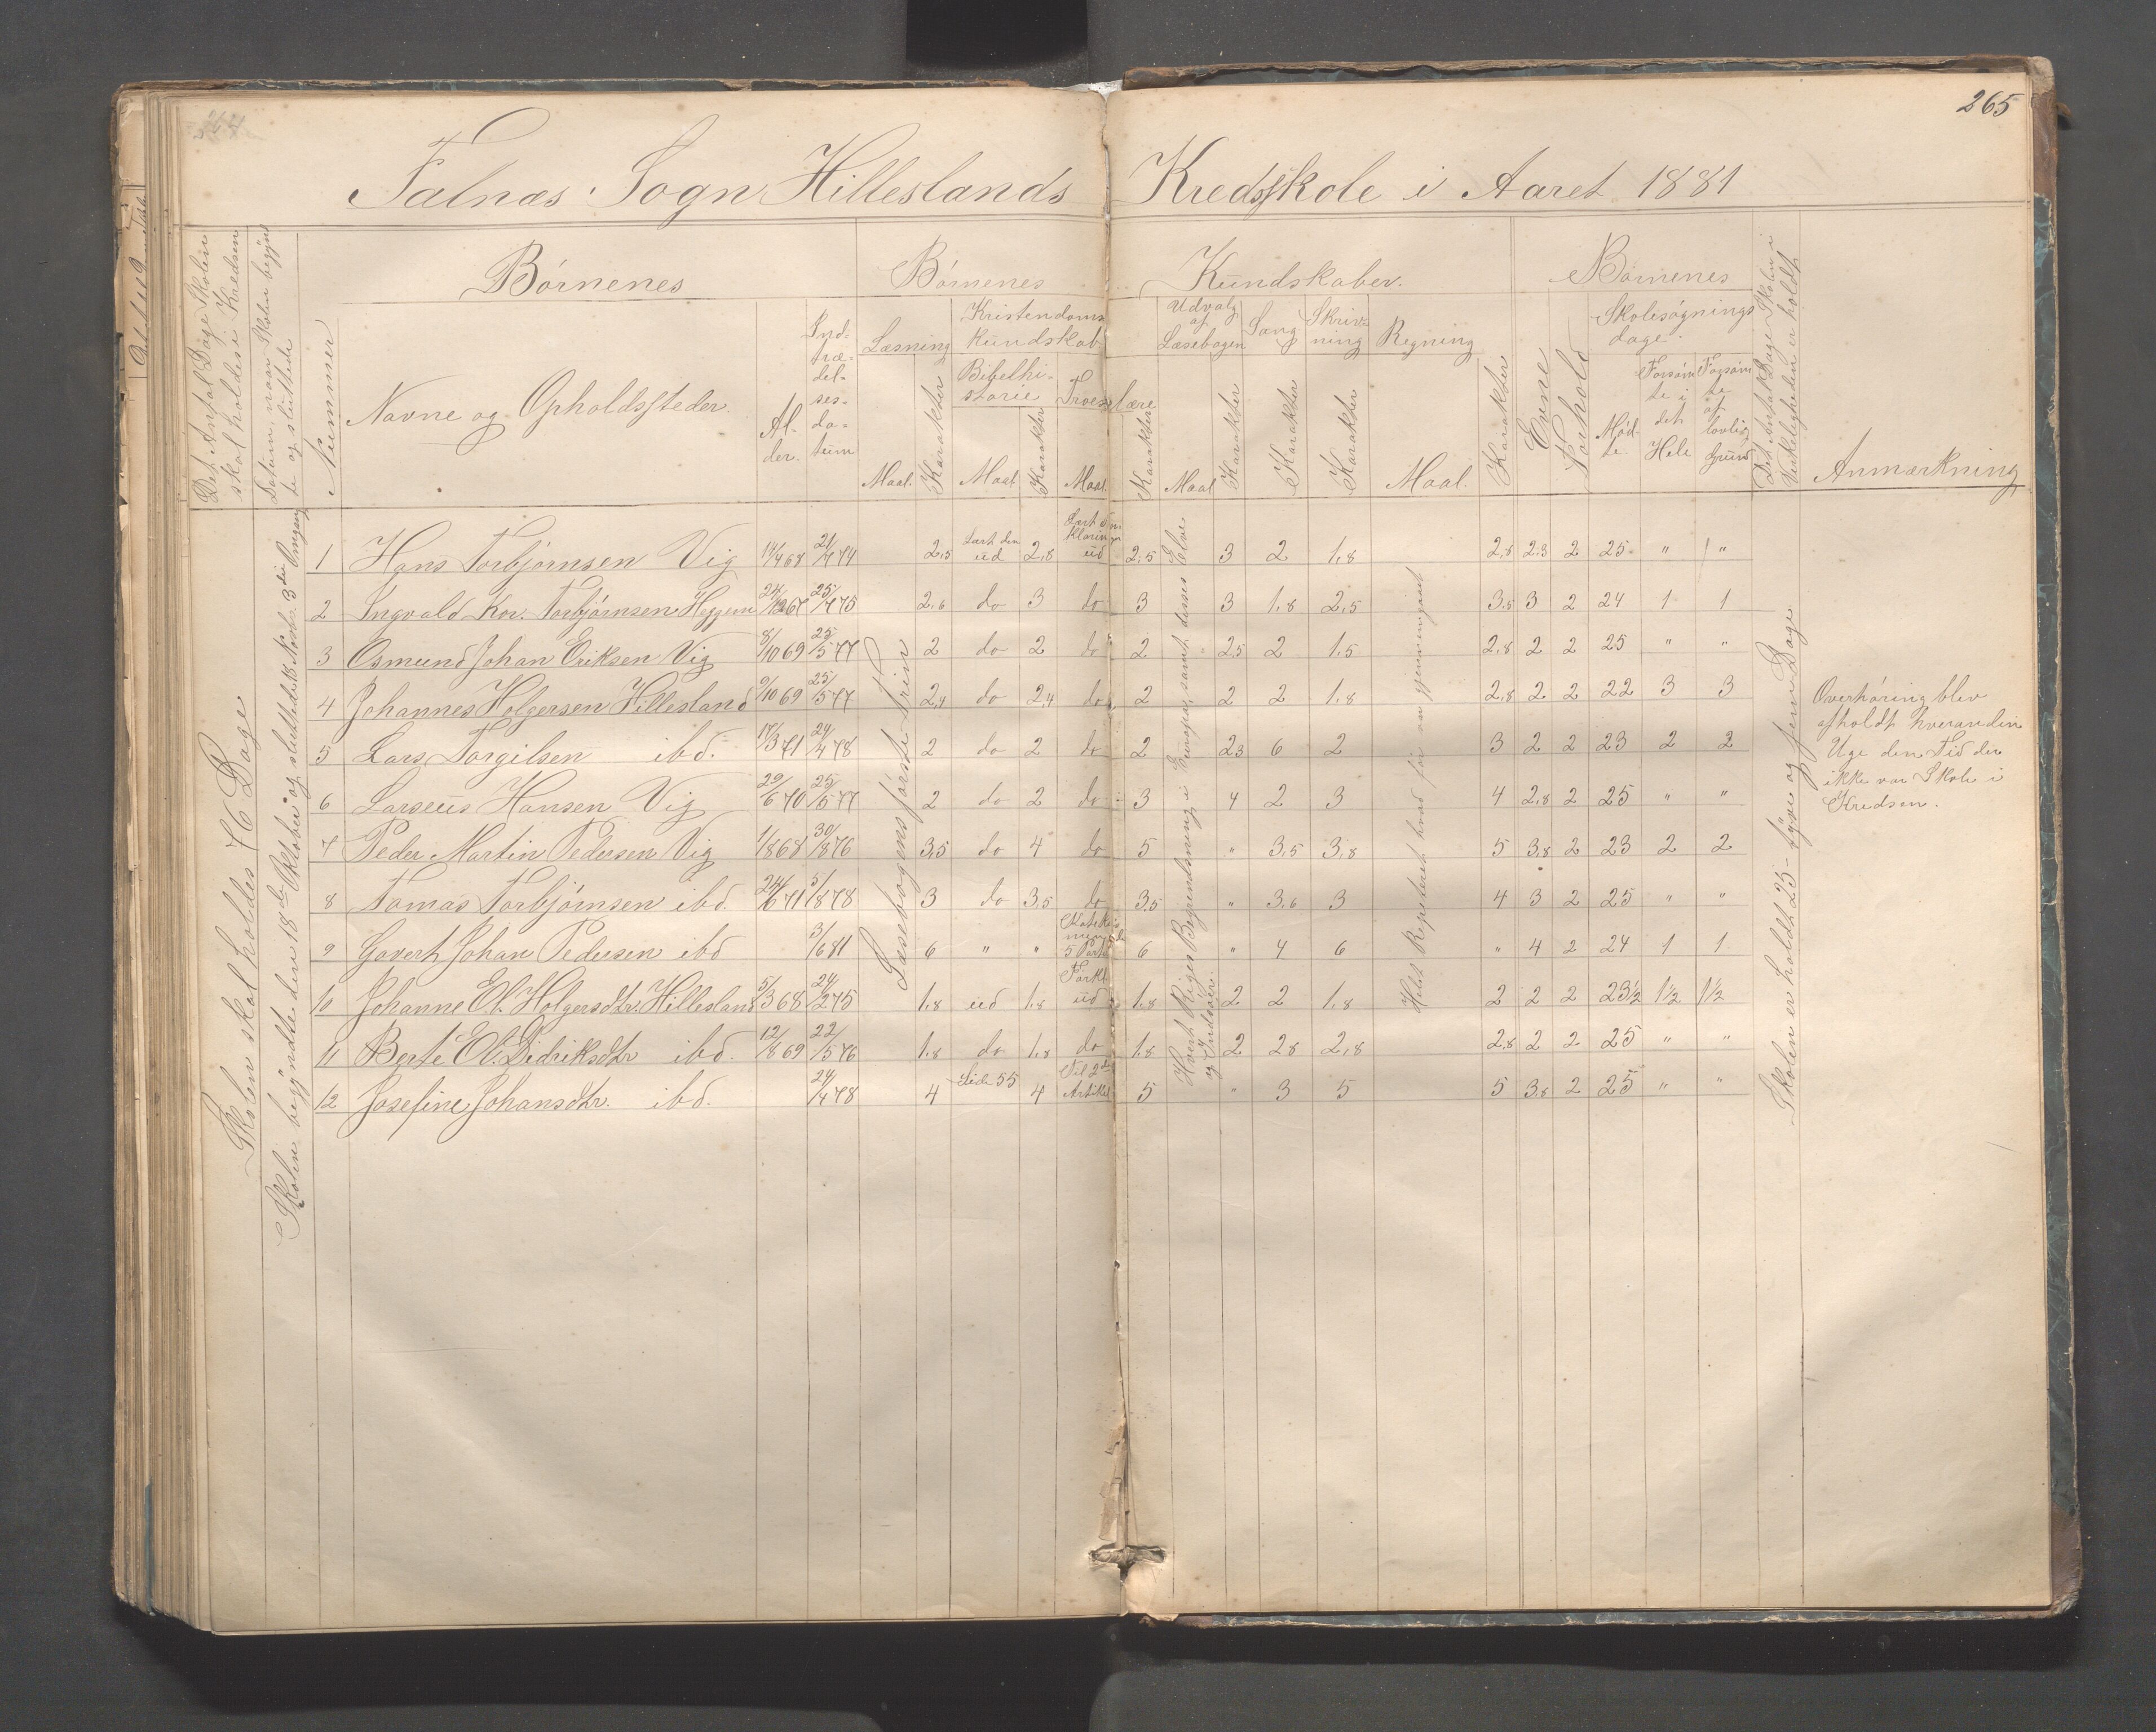 265
Falnæs Sogn Hilleslands Kredsskole i Aaret 1881
Det Antal Dage Skolen skal holdes i Kredsen
Datum, naar Skolen begynd-te og sluttede
Nummer
Børnenes
Navne og Opholdssteder.
Al-der.
Ind-træ-del-ses-da-tum
Børnenes Kundskaber.
Læsning
Maal. Karakter
Kristendoms kundskab
Bibelhi-storie
Maal Karakter
Troeslære
Maal. Karakter
Udvalg af Læsebogen
Maal Karakter
Sang
Karakter
Skriv-ning
Karakter
Regning
Maal. Karakter
Børnenes
Evne
Forhold
Skolesøgnings dage.
Mød-te.
Forsøm-te i det Hele
Forsøm-te af lovlig Grund
Det Antal Dage Skolen i Virkeligheden er holdt
Anmærkning
Skolen skal holdes 76 Dage
Skolen begyndte den 18de Oktober og sluttede 18 Novbr. 3die Omgang
Læsebogens første Trin
Hvert Riges Begrændsning i Europa, samt disses Elve og Indsøer.
Helst Repeteret hvad før er gjennemgaaet
Skolen er holdt 25 - tyve og fem Dage
1 Hans Torbjørnsen Vig 14/4 68 21/7 74 2,5 Lært den ud 2,8 Lært Forklaringen ud 2,5 3 2 1,8 2,8 2,3 2 25 " "
2 Ingvald Kor. Torbjørnsen Heggem 24/12 67 25/7 75 2,6 do 3 do 3 3 1,8 2,5 3,5 3 2 24 1 1
3 Osmund Johan Eriksen Vig 8/10 69 25/5 77 2 do 2 do 2 2,5 2 1,5 2,8 2 2 25 " "
4 Johannes Holgersen Hillesland 9/10 69 25/5 77 2,4 do 2,4 do 2 2 2 1,8 2,8 2 2 22 3 3
5 Lars Torgilsen ibd. 17/3 71 24/4 78 2 do 2 do 2 2,3 6 2 3 2 2 23 2 2
6 Larseus Hansen Vig 29/6 70 25/5 77 2 do 2 do 3 4 2 3 4 2,8 2 25 " "
7 Peder Martin Pedersen Vig 1/8 68 30/8 76 3,5 do 4 do 5 " 3,5 3,8 5 3,8 2 23 2 2
8 Tomas Torbjørnsen ibd. 24/6 71 5/8 78 3 do 3,5 do 3,5 " 3,6 3 4 3 2 25 " "
9 Govert Johan Pedersen ibd 3/6 81 6 " " 5 Part 6 " 4 6 " 4 2 24 1 1
10 Johanne El. Holgersdtr. Hillesland 5/3 68 24/2 75 1,8 ud 1,8 Forkl. ud 1,8 2 2 1,8 2 2 2 23½ 1½ 1½
11 Berte El. Didriksdtr ibd. 12/8 69 22/5 76 1,8 do 1,8 do 1,8 2 2,8 2,8 2,8 2 2 25 " "
12 Josefine Johansdtr. ibd. 24/4 78 4 Side 55 4 Til 2den Artikel 5 " 3 5 5 3,8 2 25 " "
Overhøring blev
afholdt hverandén
Uge den Tid der
ikke var Skole i
Kredsen.